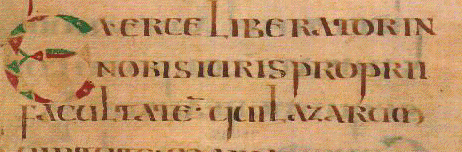 EXERCE LIBERATOR IN
NOBIS IURIS PROPRII
FACULTATE· QUI LAZARUM